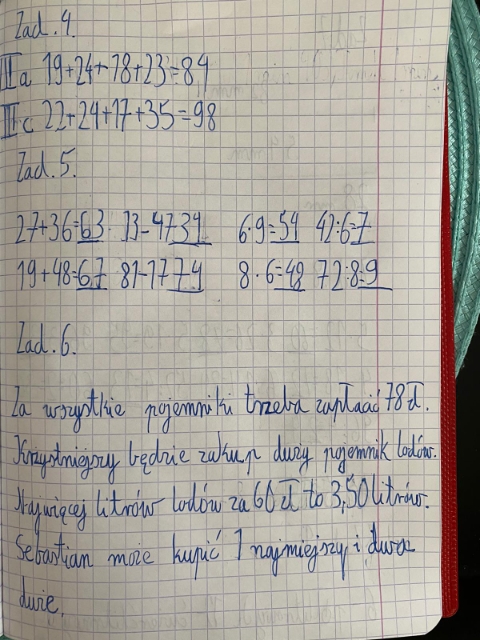 Zad. 4.
III a 19+24+18+23=84
III c 22+24+17+35=98
Zad. 5.
27+36=63 73-47=31 6·9=54 42:6=7
19+48=67 81-17=74 8·6=48 72:8=9
Zad. 6.
Za wszystkie pojemniki trzeba zapłacić 78 zł.
Krzystniejszy będzie zakup duży pojemnik lodów.
Najwięcej litrów lodów za 60 zł to 3,50 litrów.
Sebastian może kupić 1 najmiejszy i dwa
duże.